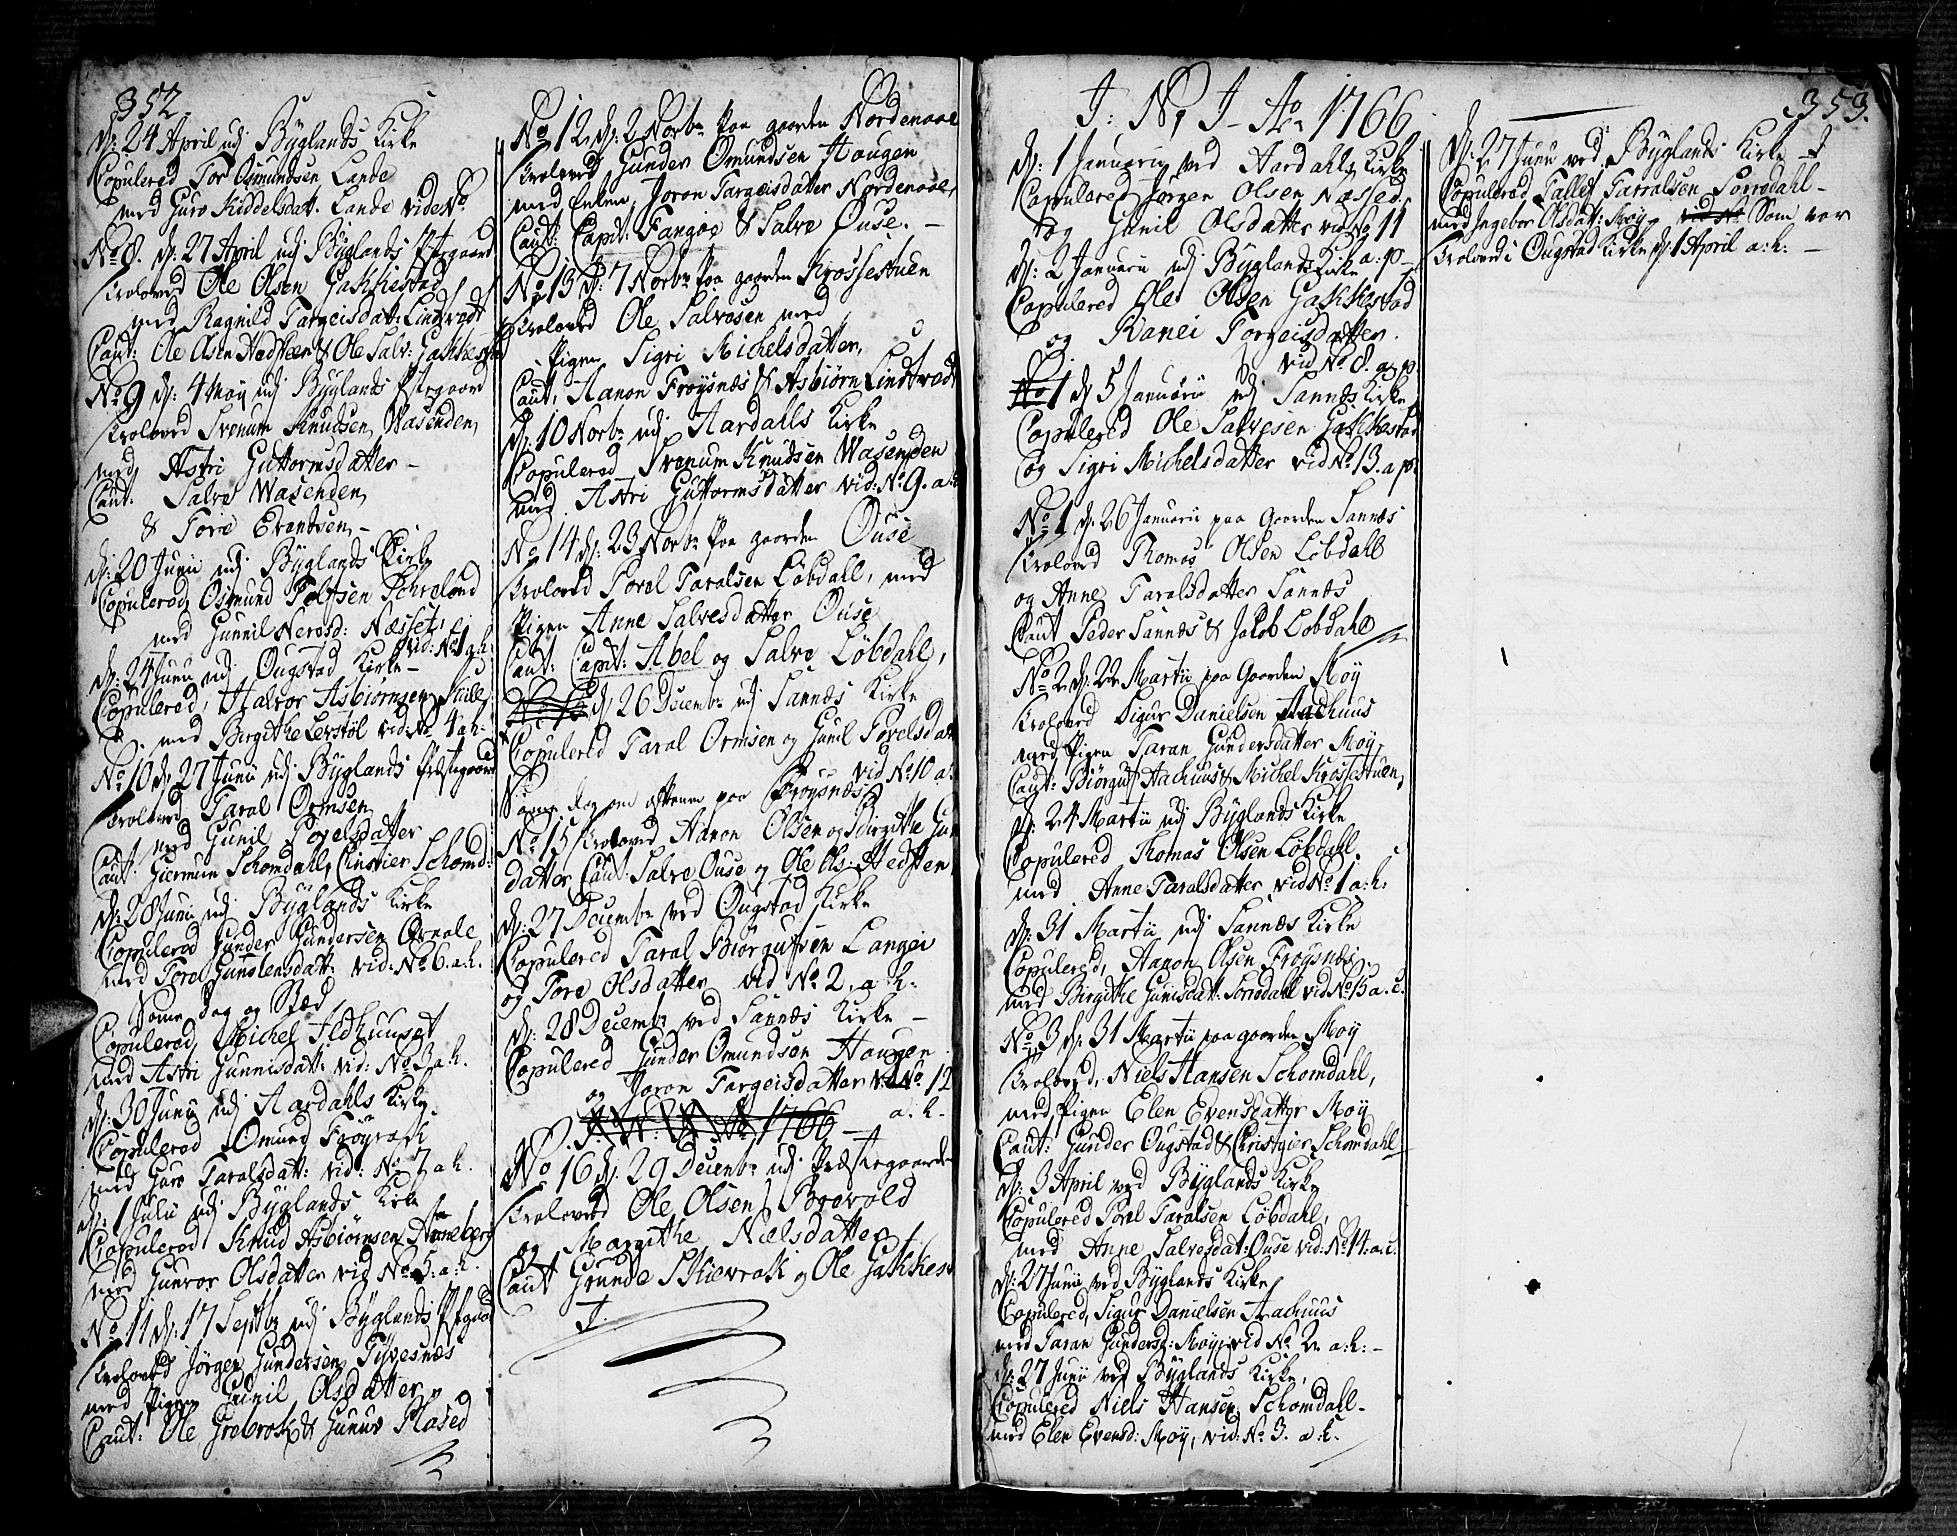 352
d: 24 April udj Byglands Kirke
Copulered Tor Osmundsen Lande
med Guro Kiddelsdatt. Lande vide No
No 8. d: 27 April udj Byglands Pstegaard
Trolowed Ole Olsen Gakkestad
med Ragnild Targeisdatt: Lindtvedt
Caut: Ole Olsen Hedsteen & Ole Salv: Gakkestad
No 9 d: 4 Maij udj Byglands Pstegaard
Trolowed Svenum Knudsen Wasenden,
med Astri Guttormsdatter -
Caut. Salve Wasenden,
& Tore Evendsen, -
d: 20 Junii udj Byglands Kirke
Copulered, Osmund Tolfsen
med Gunnil Neresd: Næsset,
vid: No 1 a:h:
d: 24 Junii udj Ougstad Kirke -
Copulered, Halvor Asbiørnsen
med Birgithe Lerstøl vid No 4 a:h:
No 10 d: 27 Junii udj Byglands Præstegaard
Trolowed Taral Ormsen
med Gunil Torelsdatter
Caut: Giermun Schomdahl, Christier Schomd:
d: 28 Junii udj Byglands Kirke
Copulered Gunder Gundersen
med Torel Gunslensdatt: vid: No 6. a.h.
Same Dag og Sted
Copulered, Michel
med Astri Gunnisdatt: vid: No 3 a.h.
d: 30 Junii udj Aardahls Kirke
Copulered Omund Frøyrak
med Guro Taralsdatt: vid: No 7 a h.
d: 1 Julii udj Byglands Kirke
Copulered Knud Asbiørnsen
med Gunvor Olsdatter vid No 5: a:h.
No 11 d: 17 Septbr udj Byglands Pstegaard
Trolowed Jørgen Gundersen
med Pigen Gunil Olsdatter
Caut: Ole Grebrok & Gunuv
No 12, d: 2 Norbr Paa gaarden Nordenaae
Trolowed Gunder Omundsen Haugen
med Enken, Joron Targeisdatter Nordenaae,
Caut: Capit: Fangoe & Salve Ouse. -
No 13 d: 7 Norbr Paa gaarden Krossestuen
Trolowed Ole Salvesen med
Pigen Sigri Michelsdatter,
Caut, Aanon Frøysnæs & Asbiørn Lindtvedt
d: 10 Norbr udj Aardalls Kirke
Copulered Svenum Knudsen Wasenden
med Astri Guttormsdatter vid: No 9. a:h
No 14 d: 23 Norbr Paa gaarden Ouse
Trolowed Torel Taralsen Løbdall, med
Pigen Anne Salvesdatter Ouse
Caut: Capit: Abel og Salve Løbdahl,
d, 26 Decembr udj Sannæs Kirke
Copulered Taral Ormsen og Gunil Torelsdatt
vid No 10 a:
Same dag om aftenen paa Frøysnæs
No 15 Trolowed Aanon Olsen og Birgithe Gun
datter, Caut. Salve Ouse og Ole Ols: Hedsten
d: 27 Decembr ved Ougstad Kirke
Copulered Taral Biørgufsen Langei
og Tore Olsdatter vid No 2, a h.
d: 28 Decembr ved Sannæs Kirke -
Copulered Gunder Omundsen Haugen
og Joron Targeisdatter vid No 12
a: h-
1766 -
No 16 d: 29 Decembr udj Præstegaarden
Trolowed Ole Olsen Brovold
og Margithe Nielsdatter
Caut Grunde Skievrak og Ole Gakkest
J.
J: N, J- Ao 1766
d: 1 Januarii ved Aardahls Kirke
Copulered Jørgen Olsen Næsset,
og Gunil Olsdatter vid No 11
a: p-
d: 2 Januarii udj Byglands Kirke
Copulered Ole Olsen Gakkestad
og Ranei Torgeisdatter.
vid No 8. a: p
No 1 d 5 Januarii udj Sannæs Kirke
Copulered Ole Salvesen Gakkestad
og Sigri Michelsdatter vid No 13. a p:
No 1 d: 26 Januarii paa Gaarden Sannæs
Trolowed Thomas Olsen Løbdahl
og Anne Taralsdatter Sannæs
Caut Peder Sannæs & Jakob Løbdahl
No 2 d: 22 Martii paa Gaarden Moy
Trolowed Sigur Danielsen Aachuus
med Pigen Taran Gundersdatter Moy,
Caut: Biørguf Aachuus & Michel Krossestuen,
d: 24 Martii udj Byglands Kirke
Copulered Thomas Olsen Løbdahl.
med Anne Taralsdatter vid No 1 a:h:
d: 31 Martii udj Sannæs Kirke
Copulered, Aanon Olsen Frøysnæs
med Birgithe Gunisdatt: Torredahl vid No 15 a. c.
No 3 d: 31 Martii paa gaarden Moy
Trolowed, Niels Hansen Schomdahl,
med Pigen Elen Evensdatter Moy
Caut: Gunder Ougstad & Christgier Schomdahl
d: 3 April ved Byglands Kirke
Copulered Torel Taralsen Løbdahl,
med Anne Salvesdat: Ouse vid: No 14: a: c.
d: 27 Junii ved Byglands Kirke
Copulered, Sigur Danielsen Aachuus
med Taran Gundersd: Moy, vid No 2 a:h: -
d: 27 Junii ved Byglands Kirke,
Copulered Niels Hansen Schomdahl-
med Elen Evensd: Moy, vid: No 3. a:h.
353.
d: 27 Junii ved Byglands Kirke
Copulered Tallef Tarralsen Torredahl -
med Ingebor Olsdatt: Moy, vid No Som var
Trolowed i Ougstad Kirke d: 1 April a:h: -